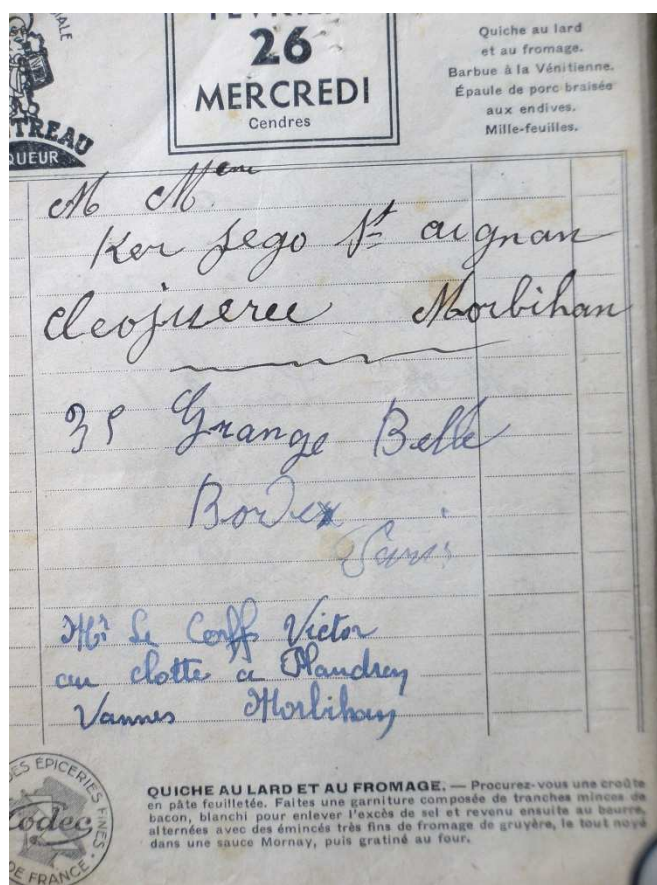 FÉVRIER
26
MERCREDI
Cendres
TREAU
QUEUR
Quiche au lard
et au fromage.
Barbue à la Vénitienne.
Épaule de porc braisée
aux endives.
Mille-feuilles.
M Mme
Ker Jego St aignan
Morbihan
35 Grange Belle
Paris
Mr Le Corff Victor
au clotte a Plaudren
Vannes Morbihan
DES EPICERIES FINES
Codec
DE FRANCE
QUICHE AU LARD ET AU FROMAGE. — Procurez-vous une croûte
en pâte feuilletée. Faites une garniture composée de tranches minces de
bacon, blanchi pour enlever l'excès de sel et revenu ensuite au beurre,
alternées avec des émincés très fins de fromage de gruyère, le tout noyé
dans une sauce Mornay, puis gratiné au four.